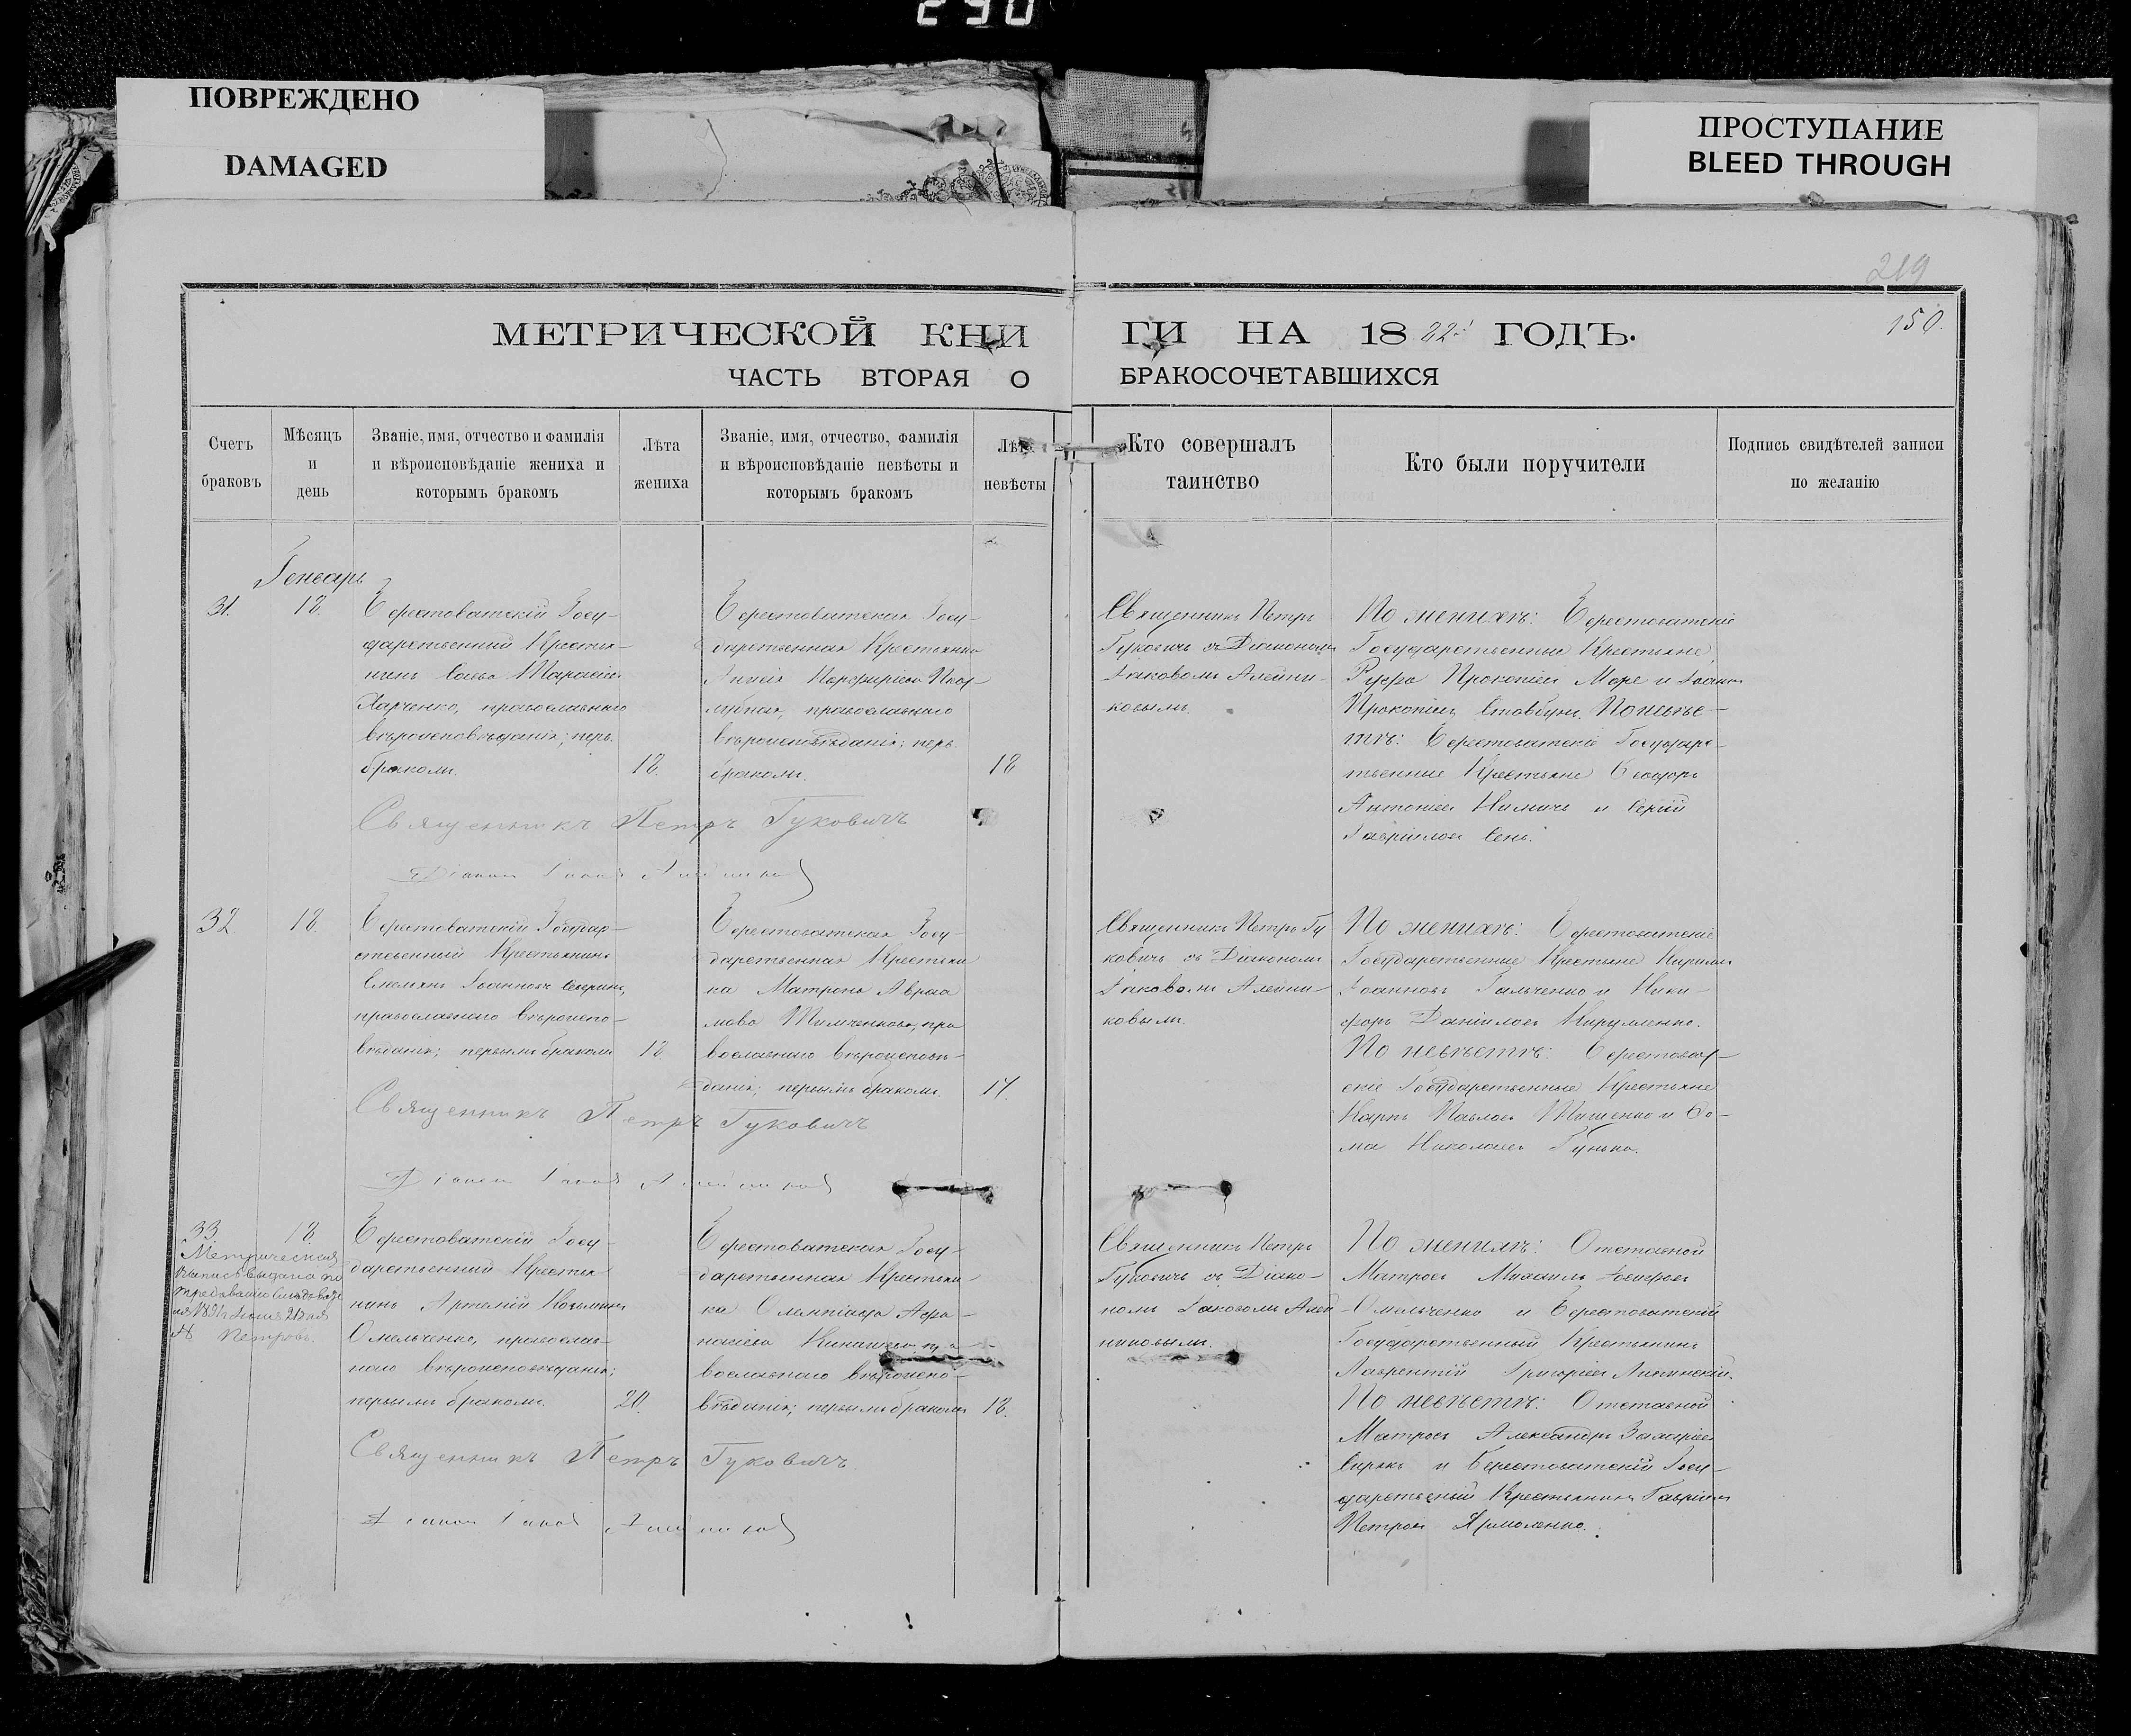 290
ПОВРЕЖДЕНО
DAMAGED
ПРОСТУПАНИЕ
BLEED THROUGH
219
150.
МЕТРИЧЕСКОЙ КНИ
ГИ НА 18 ГОДЪ.
ЧАСТЬ ВТОРАЯ О
БРАКОСОЧЕТАВШИХСЯ
Счетъ
браковъ
Мѣсяцъ
и
день
Званіе, имя, отчество и фамилія
и вѣроисповѣданіе жениха и
которымъ бракомъ
Лѣта
жениха
Званіе, имя, отчество, фамилія
и вѣроисповѣданіе невѣсты и
которымъ бракомъ
невѣсты
Кто совершалъ
таинство
Кто были поручители
Подпись свидѣтелей записи
по желанію
Генварь
31.
18.
Берестоватскій Госу-
дарственный Крестья-
нинъ Савва
Харченко, православнаго
вѣроисповѣданія; перв.
бракомъ.
18.
Берестоватская Госу-
дарственная Крестьянка
Порфиріева
православнаго
вѣроисповѣданія; перв.
бракомъ.
18
Священникъ Петръ
Гуковичъ съ Діакономъ
Іаковомъ Алейни-
ковымъ.
По женихѣ: Берестоватскіе
Государственные Крестьяне
Прокопіевъ Море и Іоаннъ
Прокопіевъ Стовбунъ. По невѣс-
тѣ: Берестоватскіе Государс-
твенные Крестьяне Ѳеодоръ
Антоніевъ и Сергій
Гавріиловъ
Священникъ Петръ Гуковичъ
Діаконъ Іаковъ Алейниковъ
32
18.
Берестоватскій Государ-
ственный Крестьянинъ
Іоанновъ
православнаго вѣроиспо-
вѣданія; первымъ бракомъ
18
Берестоватская Госу-
дарственная Крестьян
ка Матрона Авраа
мова Тимченкова, пра
вославнаго вѣроисповѣ-
данія; первымъ бракомъ.
17.
Священникъ Петръ Гу
ковичъ съ Діакономъ
Іаковомъ Алейни-
ковымъ.
По женихѣ: Берестоватскіе
Государственные Крестьяне Кириллъ
Іоанновъ Гальченко и Ники-
форъ Даніиловъ
По невѣстѣ: Берестоват-
скіе Государственные Крестьяне
Карпъ Павловъ Тищенко и Ѳо-
ма Николаевъ Гунько.
Священникъ Петръ Гуковичъ
Діаконъ Іаковъ Алейниковъ
33.
18
Метрическая
выпись выдана по
Петровъ.
Берестоватскій Госу-
дарственный Крестья
нинъ Артемій Козьминъ
Омельченко, православ-
наго вѣроисповѣданія;
первымъ бракомъ.
20.
Берестоватская Госу-
дарственная Крестьян-
ка Олимпіада Аѳа-
насіева
вославнаго вѣроиспо-
вѣданія; первымъ бракомъ
18.
Священникъ Петръ
Гуковичъ съ Діако-
номъ Іаковомъ Алей
никовымъ.
По женихѣ: Отставной
Матросъ Михаилъ Іосифовъ
Омельченко и Берестоватскій
Государственный Крестьянинъ
Лаврентій Григоріевъ Липинскій.
По невѣстѣ: Отставной
Матросъ Александръ Захаріевъ
и Берестоватскій Госу-
дарственный Крестьянинъ Гавріилъ
Петровъ Ярмоленко.
Священникъ Петръ Гуковичъ
Діаконъ Іаковъ Алейниковъ